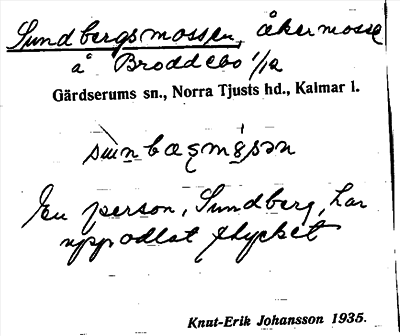 Sundbergsmossen, åkermosse
å Broddebo 1/12
Gärdserums sn., Norra Tjusts hd., Kalmar l.
En person, Sundberg, har
uppodlat stycket
Knut-Erik Johansson 1935.